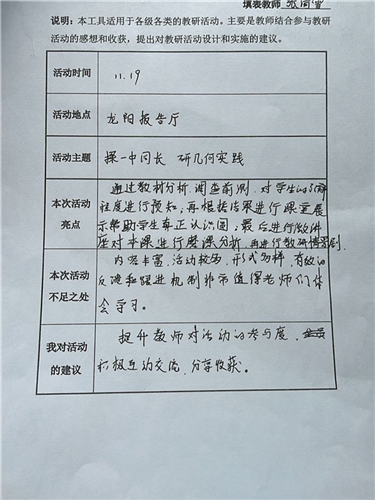 填表教师
说明：本工具适用于各级各类的教研活动。主要是教师结合参与教研
活动的感想和收获，提出对教研活动设计和实施的建议。
活动时间
11.19
活动地点
龙阳报告厅
活动主题
探一中同长 研几何实践
本次活动
亮点
通过教材分析、调查前测，对学生的了解
程度进行预知，再根据结果进行课堂展
示帮助学生真正认识圆，最后进行微讲
座对本课进行磨课分析，再进行教研
本次活动
不足之处
内容丰富、活动较场、形式多样，有效的
反馈和跟进机制非常值得老师们体
会学习。
我对活动
的建议
提升教师对活动的参与度，
积极互动交流，分享收获。